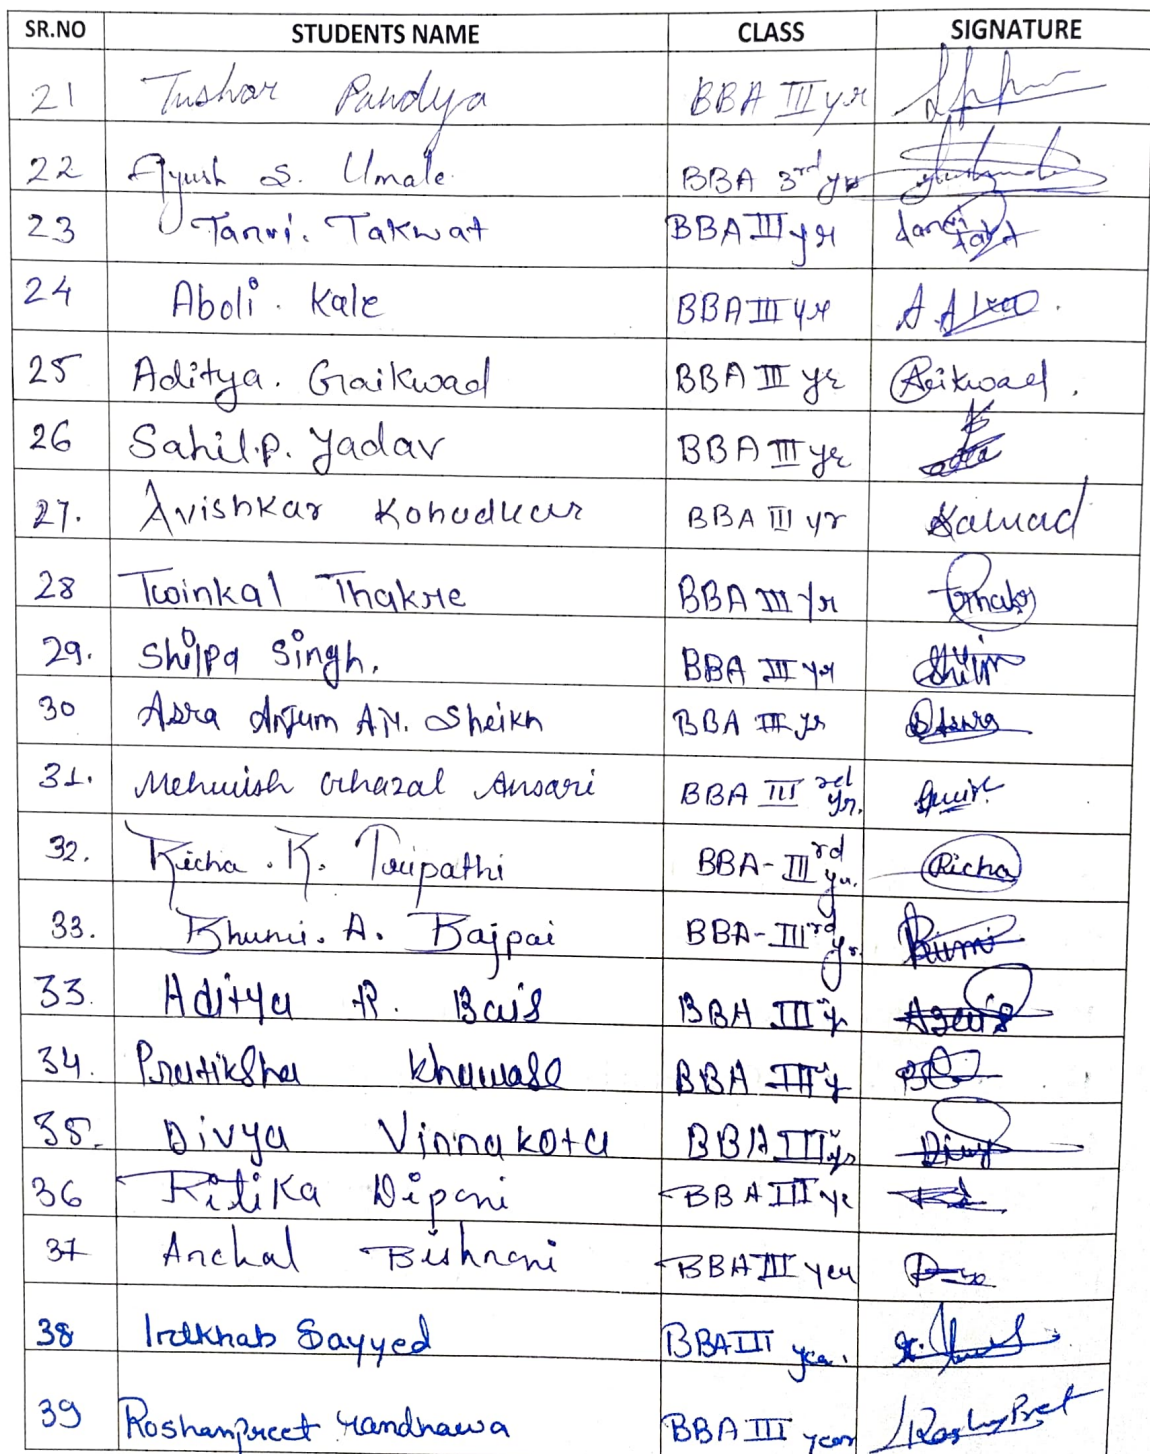 SR.NO STUDENTS NAME CLASS SIGNATURE
21 Tushar Pandya BBA III yr
22 Ayush S. Umale BBA 3rd yr
23 Tanvi. Takwat BBA III yr
24 Aboli. Kale BBA III yr
25 Aditya. Gaikwad BBA III yr Gaikwad.
26 Sahil.p. Yadav BBA III yr
27. Avishkar BBA III yr
28 Twinkal Thakre BBA III yr
29. Shilpa Singh. BBA III yr
30 Asra Anjum AM. Sheikh BBA III yr
31. Mehwish Ghazal Ansari BBA III rd yr.
32. Richa. R. Tripathi BBA-III rd yr. Richa
33. Bhumi. A. Bajpai BBA-III rd yr. Bhumi
33. Aditya R. Bais BBA III yr ABais
34. Pratiksha Khawase BBA III yr
35. Divya Vinnakota BBA III yr Divya
36 Ritika Dipani BBA III yr
37 Anchal Bishnani BBA III year
38 Sayyed BBA III yea.
39 Roshanpreet randhawa BBA III year RoshnPret